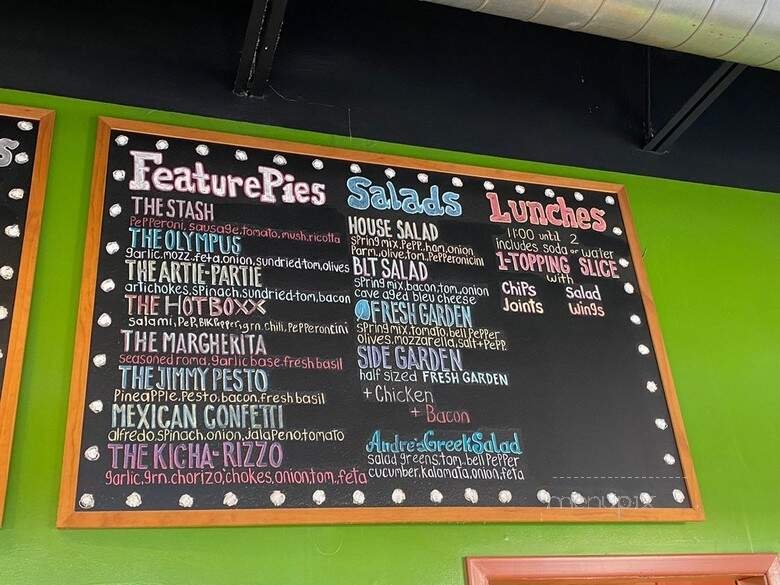 Feature Pies
THE STASH
Pepperoni, sausage, tomato, mush, ricotta
THE OLYMPUS
garlic, mozz, feta, onion, sundried tom, olives
THE ARTIE-PARTIE
artichokes, spinach, sundried tom, bacon
THE HOTBOXX
salami, PeP, BlK Pepper, grn. chili, PePPeroncini
THE MARGHERITA
seasoned roma, garlic base, fresh basil
THE JIMMY PESTO
PineaPPle, Pesto, bacon, fresh basil
MEXICAN CONFETTI
alfredo, spinach, onion, JalaPeno, tomaTo
THE KICHA-RIZZO
garlic, grn. chorizo, chokes, onion, tom, feta
Salads
HOUSE SALAD
spring mix, PePP, ham, onion
Parm, olive, tom, PePPeronicini
BLT SALAD
sPring mix, bacon, tom, onion
cave aged bleu cheese
FRESH GARDEN
sPring mix, tomato, bell PePPer
olives, mozzarella, salt + PePP.
SIDE GARDEN
half sized FRESH GARDEN
+ Chicken
+ Bacon
Andre's Greek Salad
salad greens, tom, bell PePPer
cucumber, kalamata, onion, feta
Lunches
11:00 until 2
includes soda or water
1-TOPPING SLICE
with
ChiPs Salad
Joints Wings
menupix